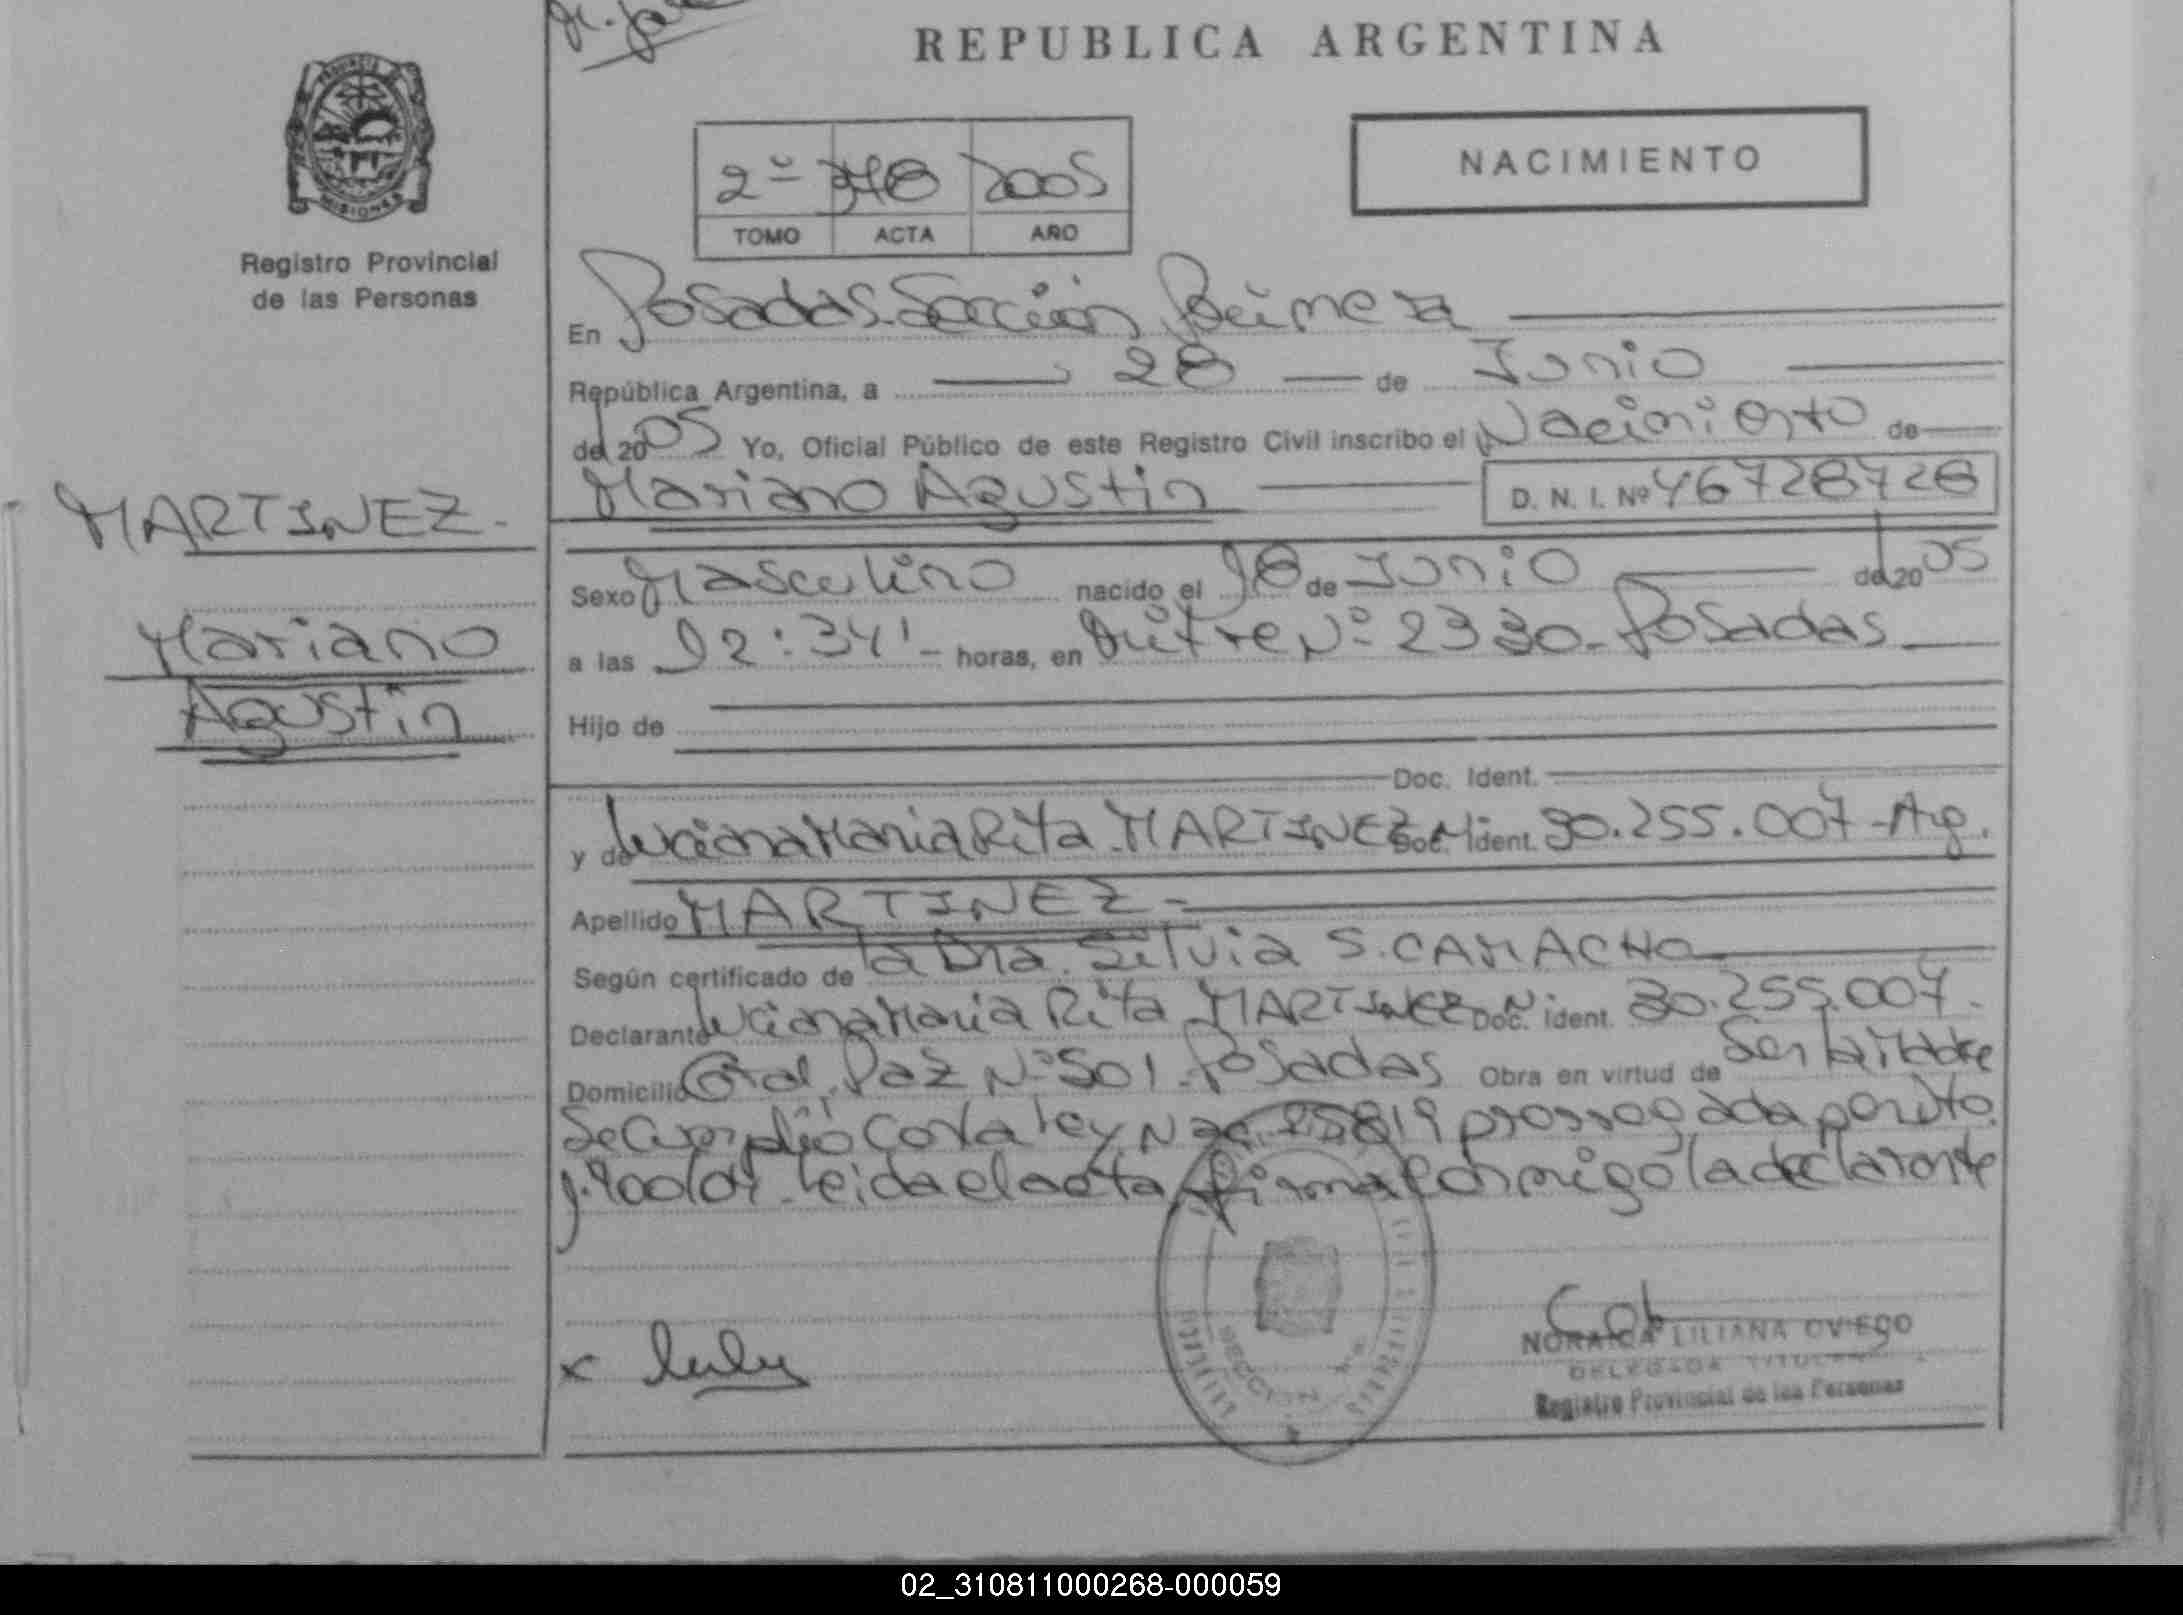 REPUBLICA ARGENTINA
PROVINCIA DE
MISIONES
Registro Provincial
de las Personas
NACIMIENTO
2º 378 2005
TOMO ACTA AÑO
En Posadas Sección Primera
República Argentina, a 28 de Junio
del 2005 Yo, Oficial Público de este Registro Civil inscribo el Nacimiento de
Mariano Agustin D. N. I. Nº 46728728
MARTINEZ.
Mariano
Agustin
Sexo Masculino nacido el 18 de Junio del 2005
a las 12:34'- horas, en Mitre Nº 2330-Posadas
Hijo de
Doc. Ident.
y de Luciana Maria Rita MARTINEZ Doc. Ident. 30.255.007-Arg.
Apellido MARTINEZ-
Según certificado de la Dra. Silvia S. CAMACHO
Declarante Luciana Maria Rita MARTINEZ Doc. Ident. 30.255.007.
Domicilio Gral. Paz Nº 501-Posadas Obra en virtud de Ser la Madre
Se cumplió con la ley Nac. 25819 prorrogada por Dto.
1.900/04. Leida el acta firma conmigo la declarante
x Luly
NORAIDA LILIANA OVIEDO
DELEGADA TITULAR
Registro Provincial de las Personas
SECCION
02_310811000268-000059